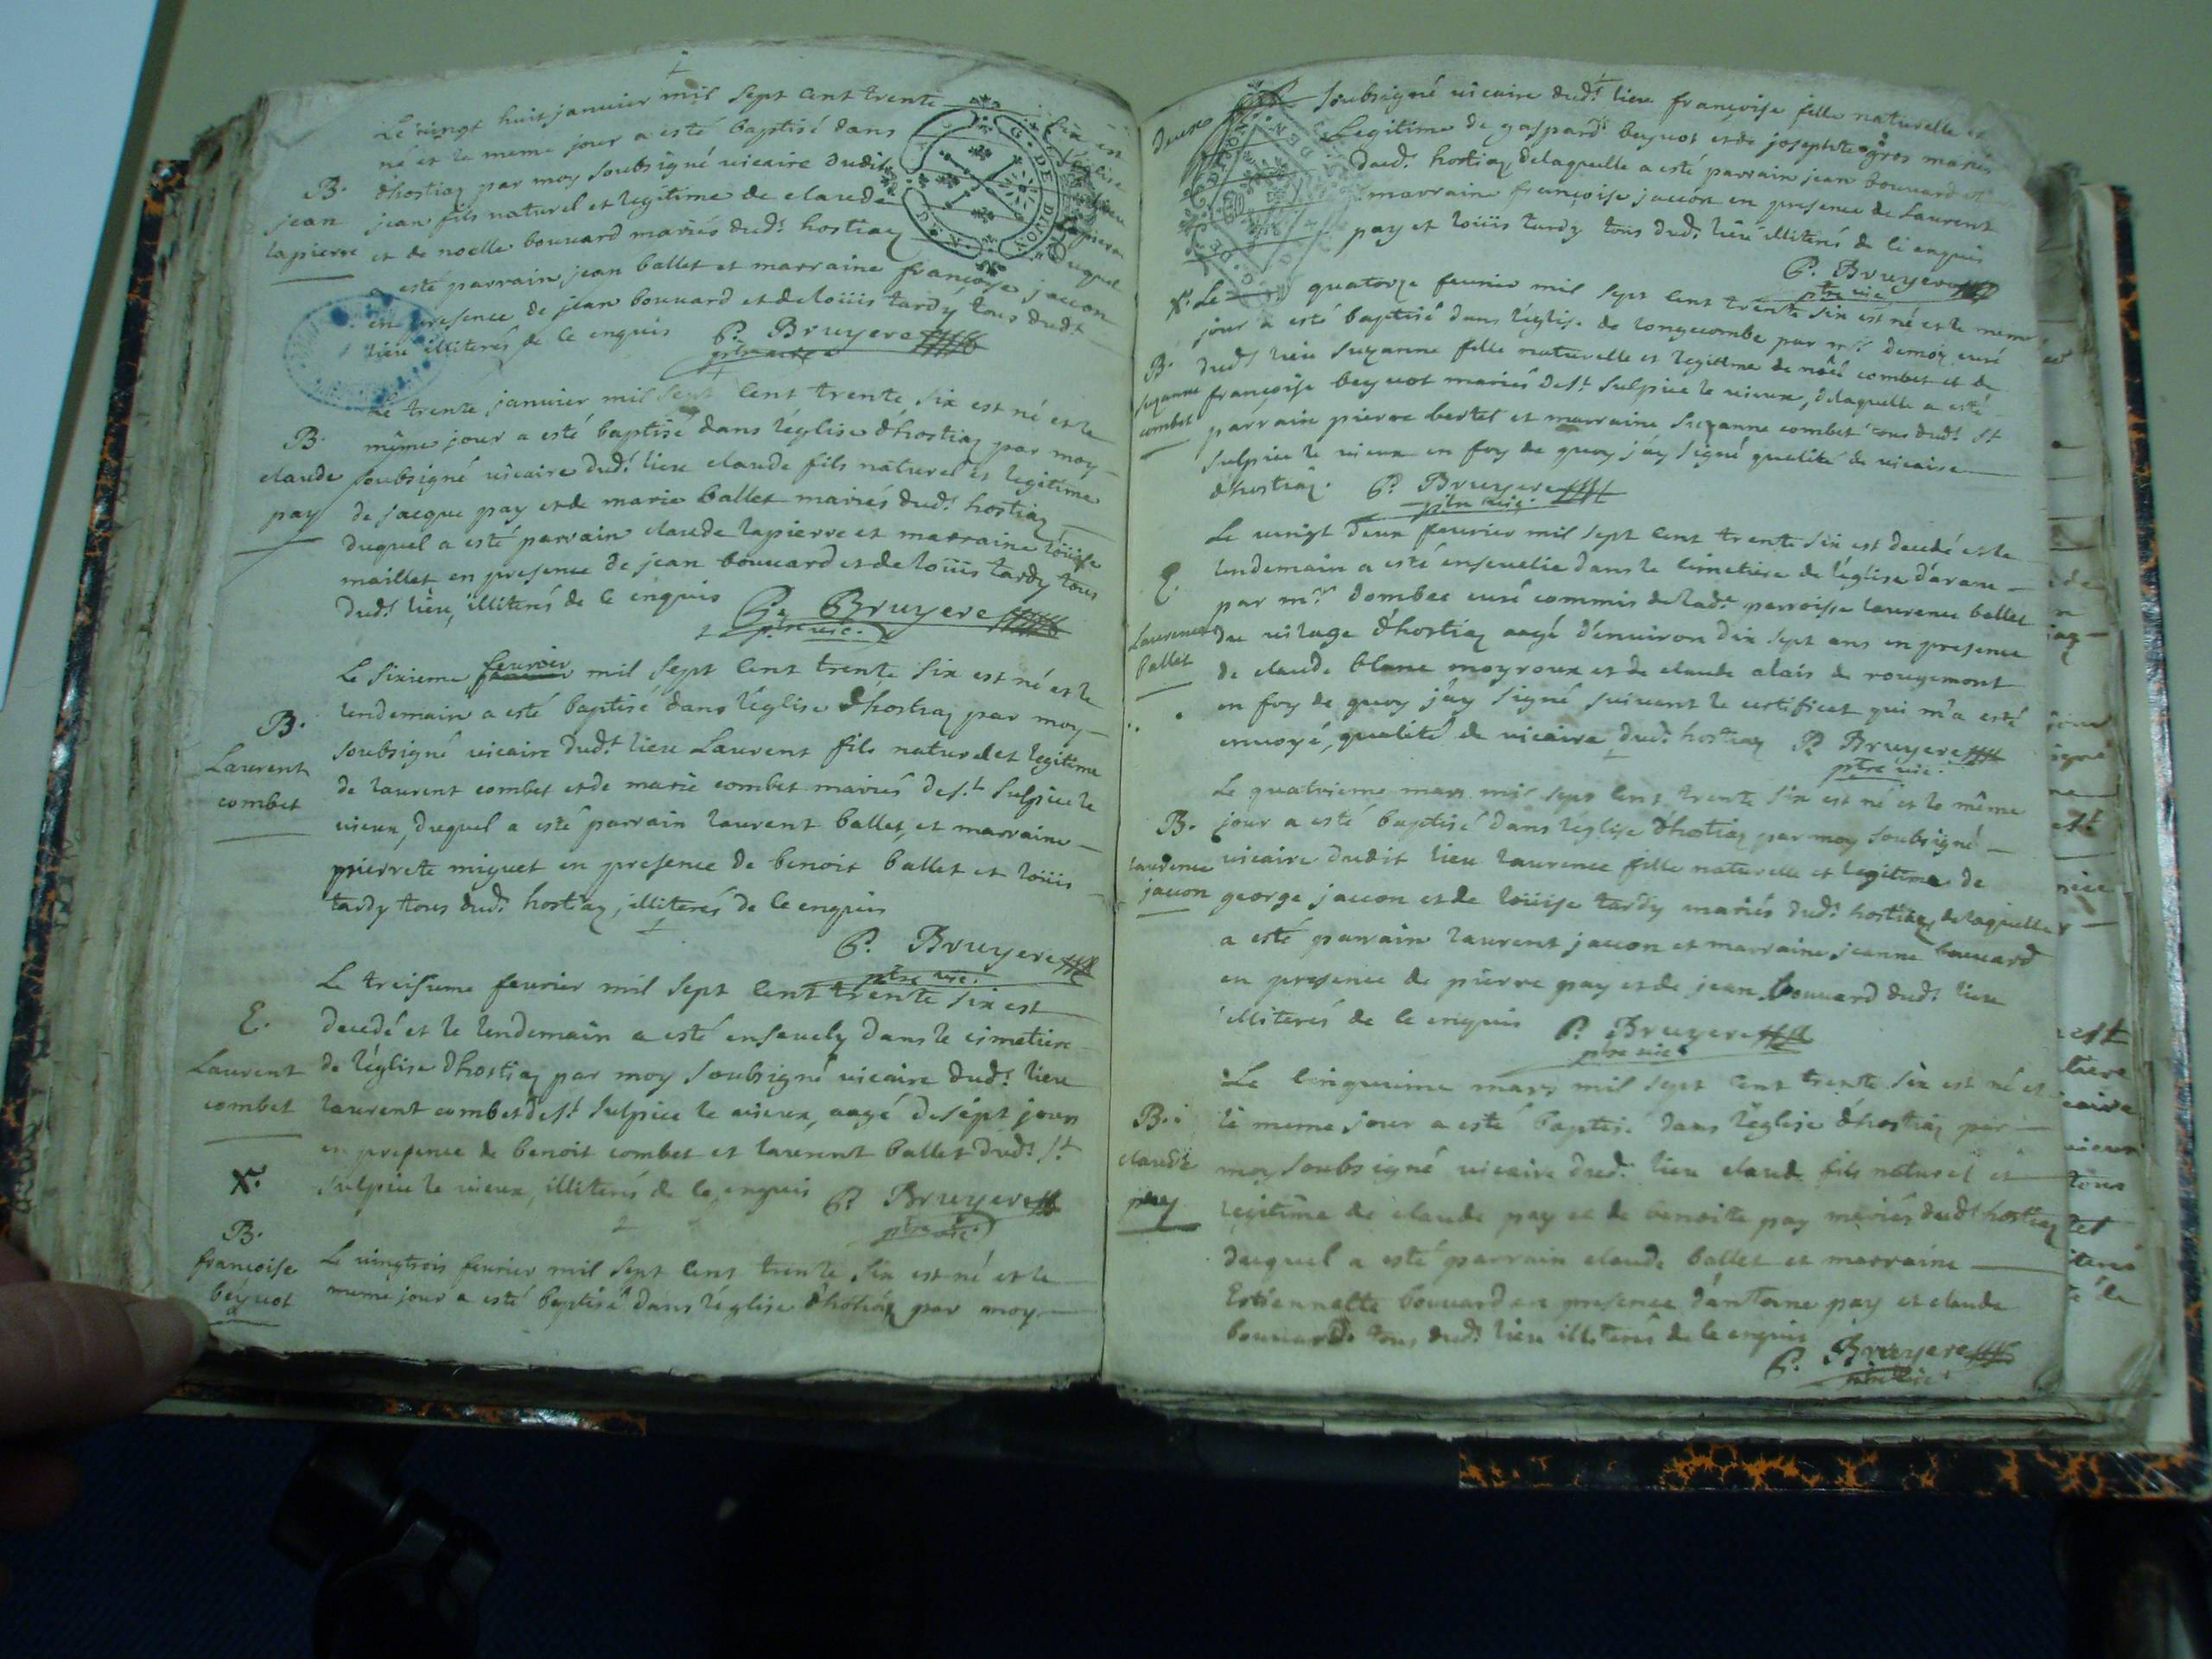 Le vingt huit janvier mil sept cent trente six est
né et le meme jour a esté baptisé dans l'église
B. d'hostiaz par moy soubsigné vicaire dudit lieu
jean jean fils naturel et legitime de claude lapierre
lapierre et de noelle bouvard mariés dud.t hostiaz duquel
a esté parrain jean ballet et marraine françoise jacson
en presence de jean bouvard et de loüis tardy tous dud.t
lieu illiterés de ce enquis P. Bruyere
ptre vic.
Le trente janvier mil sept cent trente six est né et le
B. même jour a esté baptisé dans l'église d'hostiaz par moy
claude soubsigné vicaire dud.t lieu claude fils naturel et legitime
pay de jacque pay et de marie ballet mariés dud.t hostiaz
duquel a esté parrain claude lapierre et marraine loüise
maillet en presence de jean bouvard et de loüis tardy tous
dud.t lieu, illiterés de ce enquis P. Bruyere
ptre vic.
Le sixieme fevrier mil sept cent trente six est né et le
B. lendemain a esté baptisé dans l'église d'hostiaz par moy
Laurent soubsigné vicaire dud.t lieu Laurent fils naturel et legitime
combet de laurent combet et de marie combet mariés de s.t sulpice le
vieux, duquel a esté parrain laurent ballet, et marraine
pierrete miguet en presence de benoit ballet et loüis
tardy tous dud.t hostiaz, illiterés de ce enquis
P. Bruyere
ptre vic.
Le treisieme fevrier mil sept cent trente six est
E. decedé et le lendemain a esté ensevely dans le cimetiere
Laurent de l'église d'hostiaz par moy soubsigné vicaire dud.t lieu
combet laurent combet de s.t sulpice le vieux, aagé de sept jours
en presence de benoit combet et laurent ballet dud.t s.t
X. sulpice le vieux, illiterés de ce enquis P. Bruyere
ptre vic.
B.
françoise Le vingtrois fevrier mil sept cent trente six est né et le
béquot meme jour a esté baptisé dans l'église d'hostiaz par moy
deux soubsigné vicaire dud.t lieu françoise fille naturelle et
legitime de gaspard bequot et de josephte gros mariés
dud.t hostiaz delaquelle a esté parrain jean bouvard et
marraine françoise jacson en presence de Laurent
pay et loüis tardy tous dud.t lieu illiterés de ce enquis
P. Bruyere
ptre vic.
X. Le quatorze fevrier mil sept cent trente six est né et le meme
jour a esté baptisé dans l'église de longecombe par m.re demoz curé
B. dud.t lieu suzanne fille naturelle et legitime de combet et de
suzanne françoise bequot mariés de s.t sulpice le vieux, delaquelle a esté
combet parrain pierre bertet et marraine suzanne combet tous dud.t s.t
sulpice le vieux en foy de quoy j'ay signé qualité de vicaire
d'hostiaz. P. Bruyere
ptre vic.
Le vingt deux fevrier mil sept cent trente six est decedé et le
E. lendemain a esté ensevelie dans le cimetiere de l'église d'arane
par m.re dombec curé commis de lad.t parroisse laurence ballet
Laurence du vilage d'hostiaz aagé d'environ dix sept ans en presence
ballet de claude blanc moyroux et de claude alais de rougemont
en foy de quoy j'ay signé suivant le certificat qui m'a esté
envoyé, qualité de vicaire dud.t hostiaz P. Bruyere
ptre vic.
Le quatrieme mars mil sept cent trente six est né et le même
B. jour a esté baptisé dans l'église d'hostiaz par moy soubsigné
laurence vicaire dudit lieu laurence fille naturelle et legitime de
jacson george jacson et de loüise tardy mariés dud.t hostiaz delaquelle
a esté parrain laurent jacson et marraine jeanne bouvard
en presence de pierre pay et de jean bouvard dud.t lieu
illiterés de ce enquis P. Bruyere
ptre vic.
Le cinquieme mars mil sept cent trente six est né et
B. le meme jour a esté baptisé dans l'église d'hostiaz par
claude moy soubsigné vicaire dud.t lieu claude fils naturel et
pay legitime de claude pay et de benoite pay mariés dud.t hostiaz
duquel a esté parrain claude ballet et marraine
Estiennette bouvard en presence d'antoine pay et claude
bouvard tous dud.t lieu illiterés de ce enquis
P. Bruyere
ptre vic.